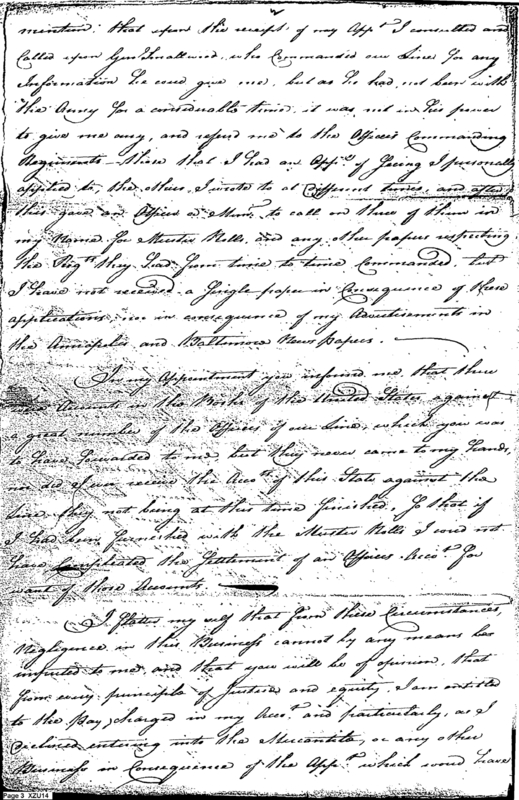 mention: that upon the receipt of my App.t I consulted and
Called upon Genl Smallwood, who Commanded our Line for any
Information he coud give me, but as he had not been with
the Army for a considerable time, it was not in his power
to give me any, and referd me to the Officers Commanding
Regiments – those that I had an App.y of Seeing I personally
applied to, the others I wrote to at Different times, and after
this gave an Officer a Mem.o to call on those of them in
my Name for Muster Rolls, and any other papers respecting
the Reg.ts they had from time to time Commanded, but
I have not received a Single paper in Consequence of these
applications, nor in consequence of my Advertisements in
the Annapolis and Baltimore News papers.
In my Appointment you informed me that there
were Accounts in the Books of the United States against
a great number of the Officers of our Line, which you was
to have forwarded to me, but they never came to my hands,
nor did I ever receive the Acco.ts of this State against the
Line, they not being at this time finished, So that if
I had been furnished with the Muster Rolls I coud not
have Compleated the Settlement of an Officers Acco.t for
want of those Accounts.
I flatter my self that from these Circumstances,
Negligence in this Business cannot by any means be
imputed to me, and that you will be of opinion, that
from every principle of Justice and equity, I am entitled
to the Pay charged in my Acco.t and particularly, as I
declined entering into the Mercantile, or any other
Business in Consequence of the App.t which woud have
Page 3 XZU14